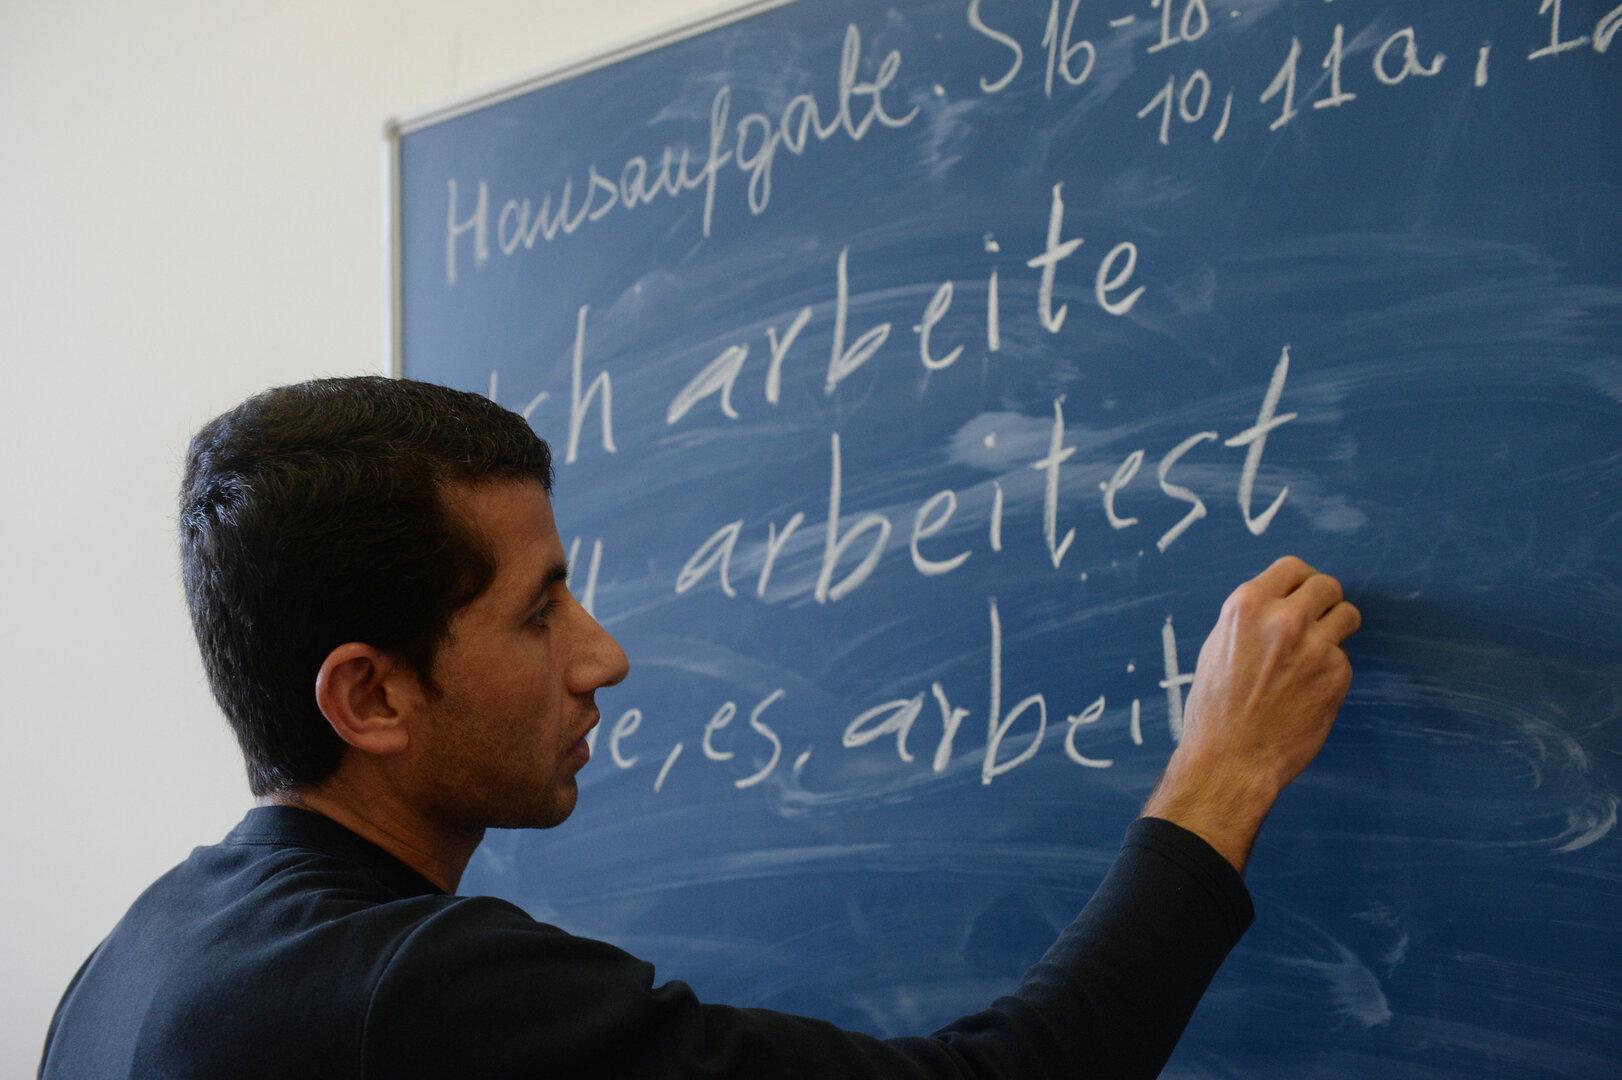 Hausaufgabe. S 16-18.
10, 11a, 12
ich arbeite
du arbeitest
e, es, arbeit